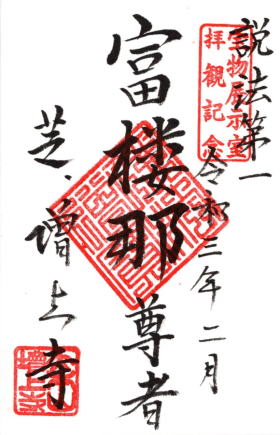 説法第一
宝物展示室
拝観記念
令和三年二月
富楼那尊者
芝、増上寺
増上寺